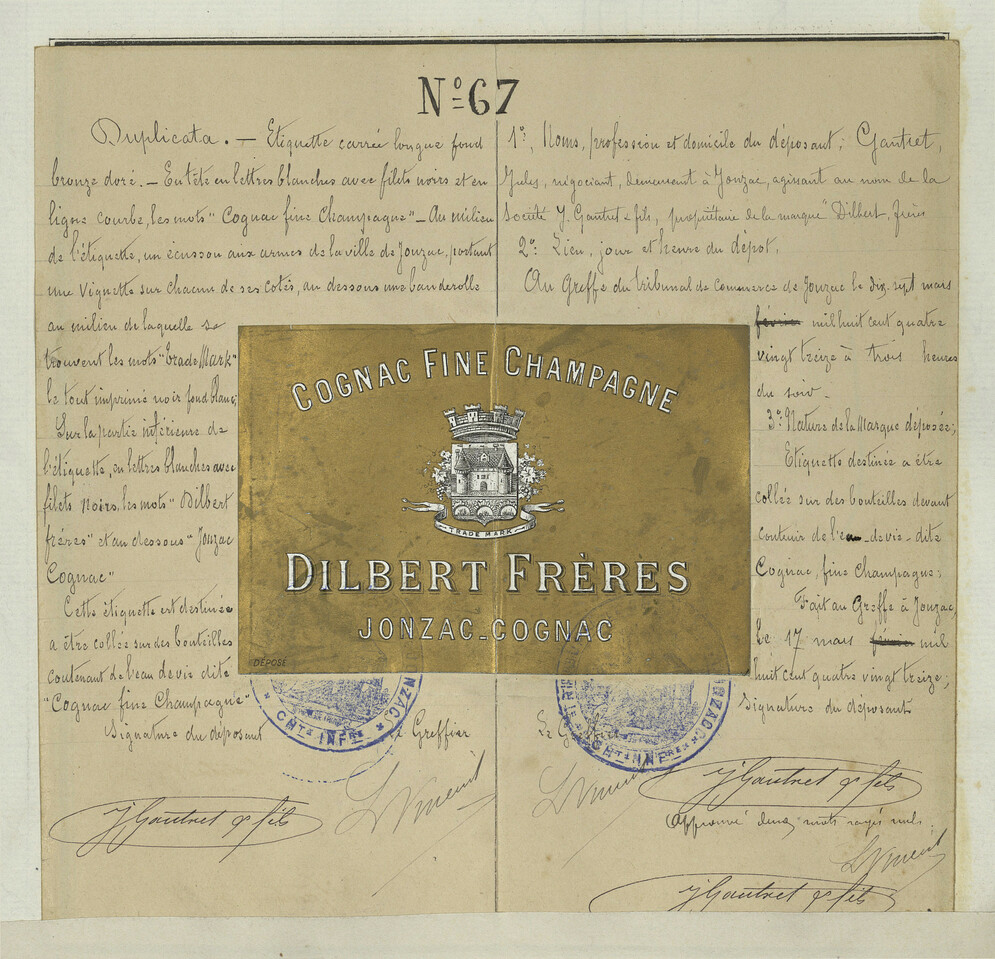 Nº 67
Duplicata. — Etiquette carrée longue fond
bronze doré. — En tête en lettres blanches avec filets noirs et en
ligne courbe, les mots "Cognac fine Champagne" — Au milieu
de l'étiquette, un écusson aux armes de la ville de Jonzac, portant
une vignette sur chacun de ses cotés, au dessous une banderolle
au milieu de laquelle se
trouvent les mots "Trade Mark"
le tout imprimé noir fond blanc;
Sur la partie inférieure de
l'étiquette, en lettres blanches avec
filets noirs, les mots "Dilbert
frères" et au dessous "Jonzac
Cognac"
Cette étiquette est destinée
a être collée sur des bouteilles
contenant de l'eau de vie dite
"Cognac fine Champagne"
Signature du déposant
Le Greffier
J Gautret & fils
1º, Noms, profession et domicile du déposant; Gautret,
Jules, négociant, demeurant à Jonzac, agissant au nom de la
Société J. Gautret & fils, propriétaire de la marque "Dilbert, frères
2º: Lieu, jour et heure du dépot.
Au Greffe du tribunal de commerce de Jonzac le dix sept mars
février mil huit cent quatre
vingt treize à trois heures
du soir.
3º: Nature de la Marque déposée;
Etiquette destinée a être
collée sur des bouteilles devant
contenir de l'eau-de-vie dite
Cognac, fine Champagne;
Fait au Greffe à Jonzac,
le 17 mars février mil
huit cent quatre vingt treize;
Signature du déposant
Le G
J Gautret & fils
Approuvé deux mots rayés nuls.
J Gautret & fils
COGNAC FINE CHAMPAGNE
TRADE MARK
DILBERT FRÈRES
JONZAC-COGNAC
DÉPOSÉ
JONZAC.
CHTE INFRE
NZAC.
CHTE INFRE